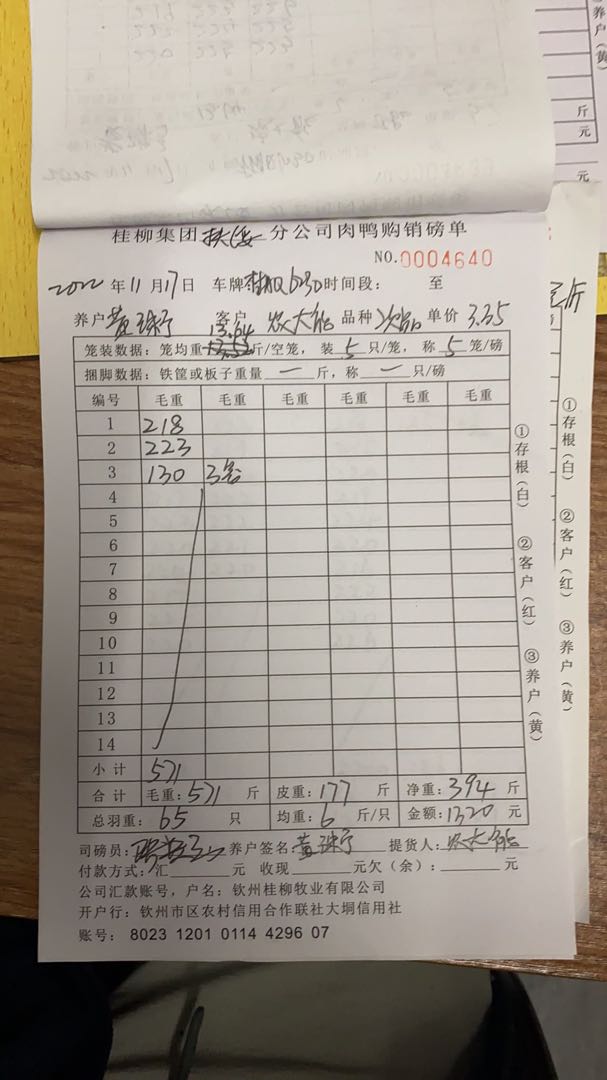 桂柳集团扶绥分公司肉鸭购销磅单
NO.0004640
2022年11月17日 车牌 时间段： 至
养户 黄 宁 客户 农大能 品种 次品 单价 3.35
笼装数据：笼均重 13.64 斤/空笼，装 5 只/笼，称 5 笼/磅
捆脚数据：铁筐或板子重量 一 斤，称 一 只/磅
编号 毛重 毛重 毛重 毛重 毛重 毛重
1 218
2 223
3 130 3笼
4
5
6
7
8
9
10
11
12
13
14
小计 571
合计 毛重：571 斤 皮重：177 斤 净重：394 斤
总羽重：65 只 均重：6 斤/只 金额：1320 元
司磅员： 养户签名：黄 宁 提货人：农大能
付款方式：汇 元 收现 元欠（余）： 元
公司汇款账号，户名：钦州桂柳牧业有限公司
开户行：钦州市区农村信用合作联社大垌信用社
账号： 8023 1201 0114 4296 07
①存根（白） ②客户（红） ③养户（黄）
①存根（白） ②客户（红） ③养户（黄）
养户（黄）
斤
元
元
斤